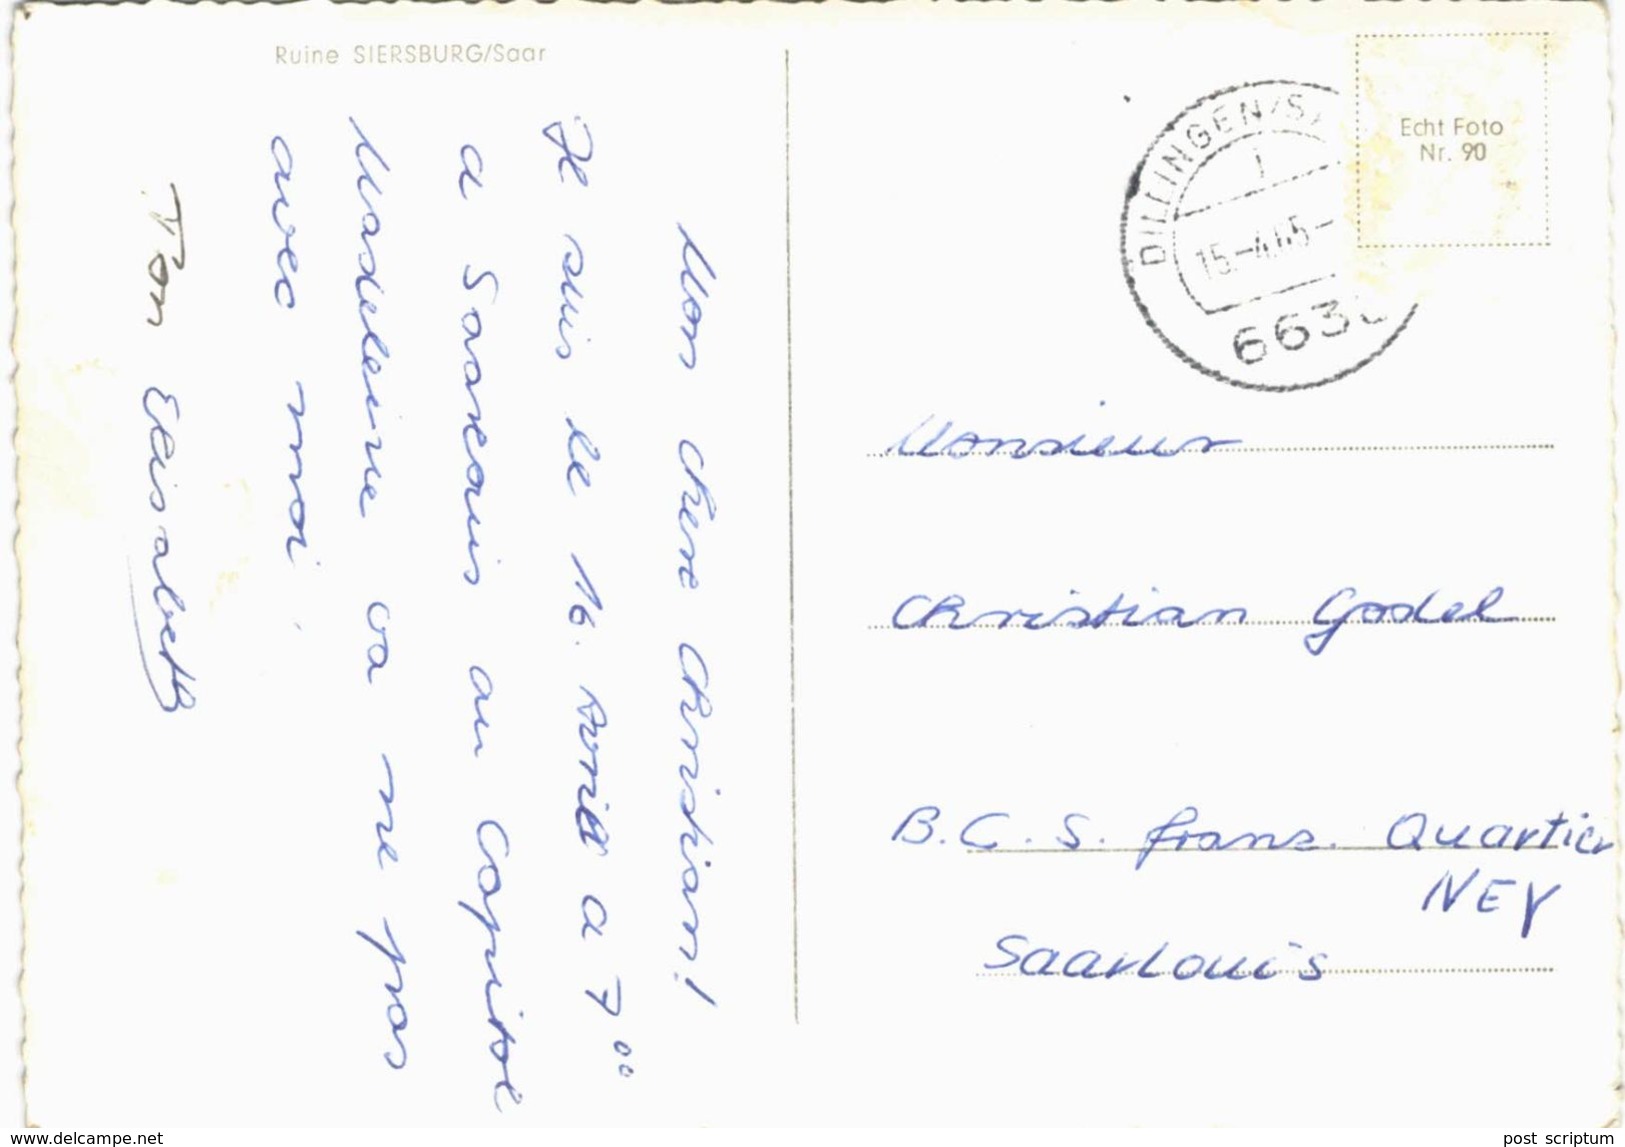 Ruine SIERSBURG/Saar
Mon chere Christian!
Je suis le 16. Avril a 7⁰⁰
a Saarlouis au Capitol
Madeleine va ne pas
avec moi.
Ton Elisabeth
DILLINGEN/SA
15.-4.65-
663
Echt Foto
Nr. 90
Monsieur
Christian Godel
B.C.S. franz. Quartier
NEY
Saarlouis
www.delcampe.net
post_scriptum